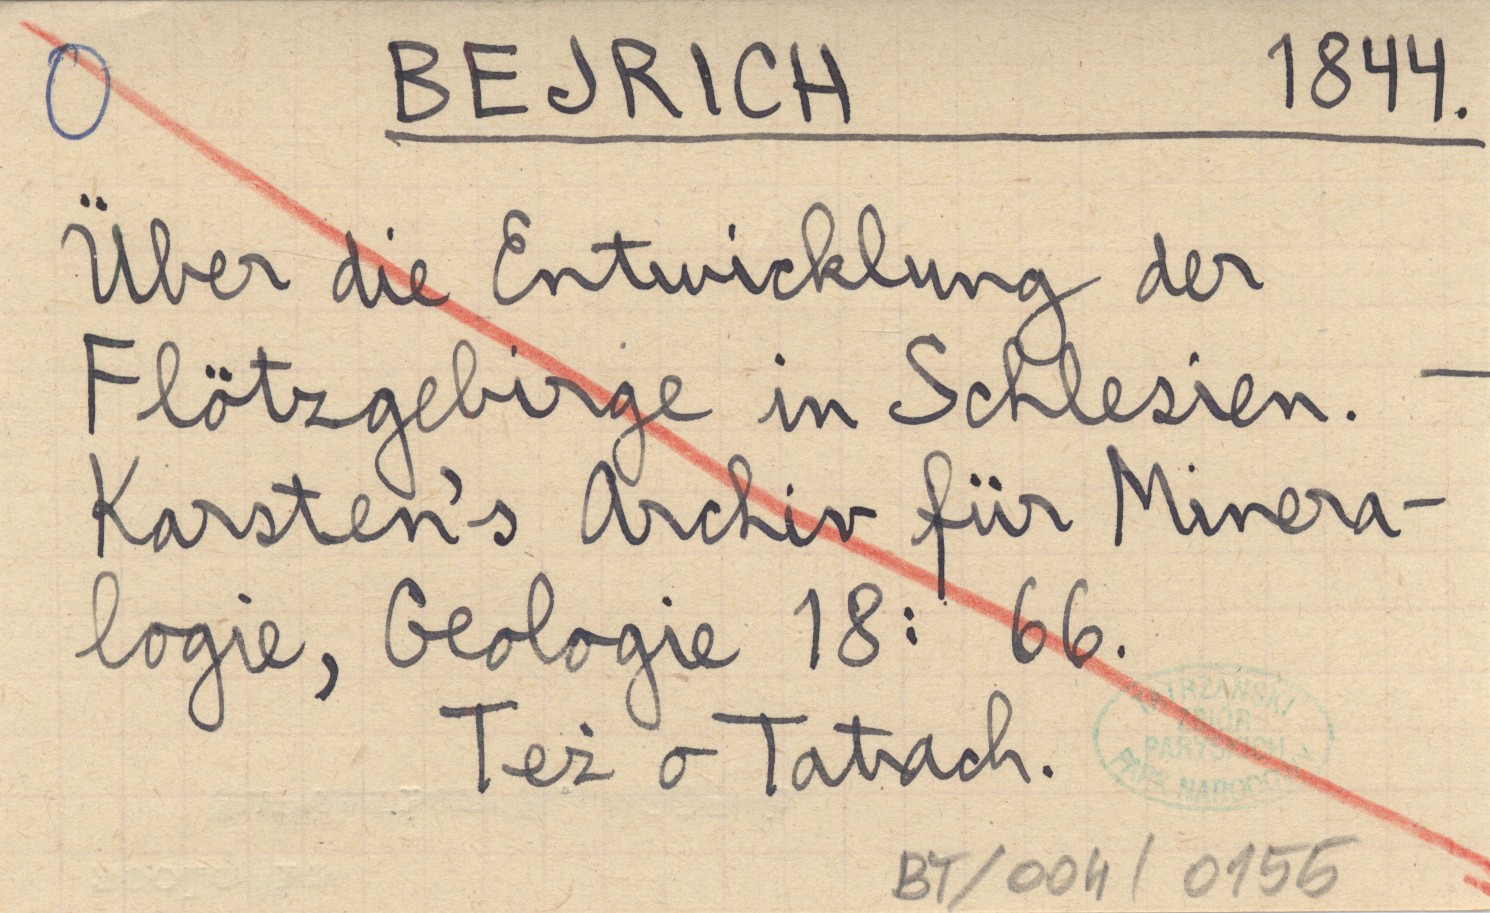 O BEJRICH 1844.
Über die Entwicklung der
Flötzgebirge in Schlesien. —
Karsten's Archiv für Minera-
logie, Geologie 18: 66.
Też o Tatrach.
TATRZAŃSKI
ZBIÓR
PARYSKICH
PARK NARODOWY
BT/004/0155